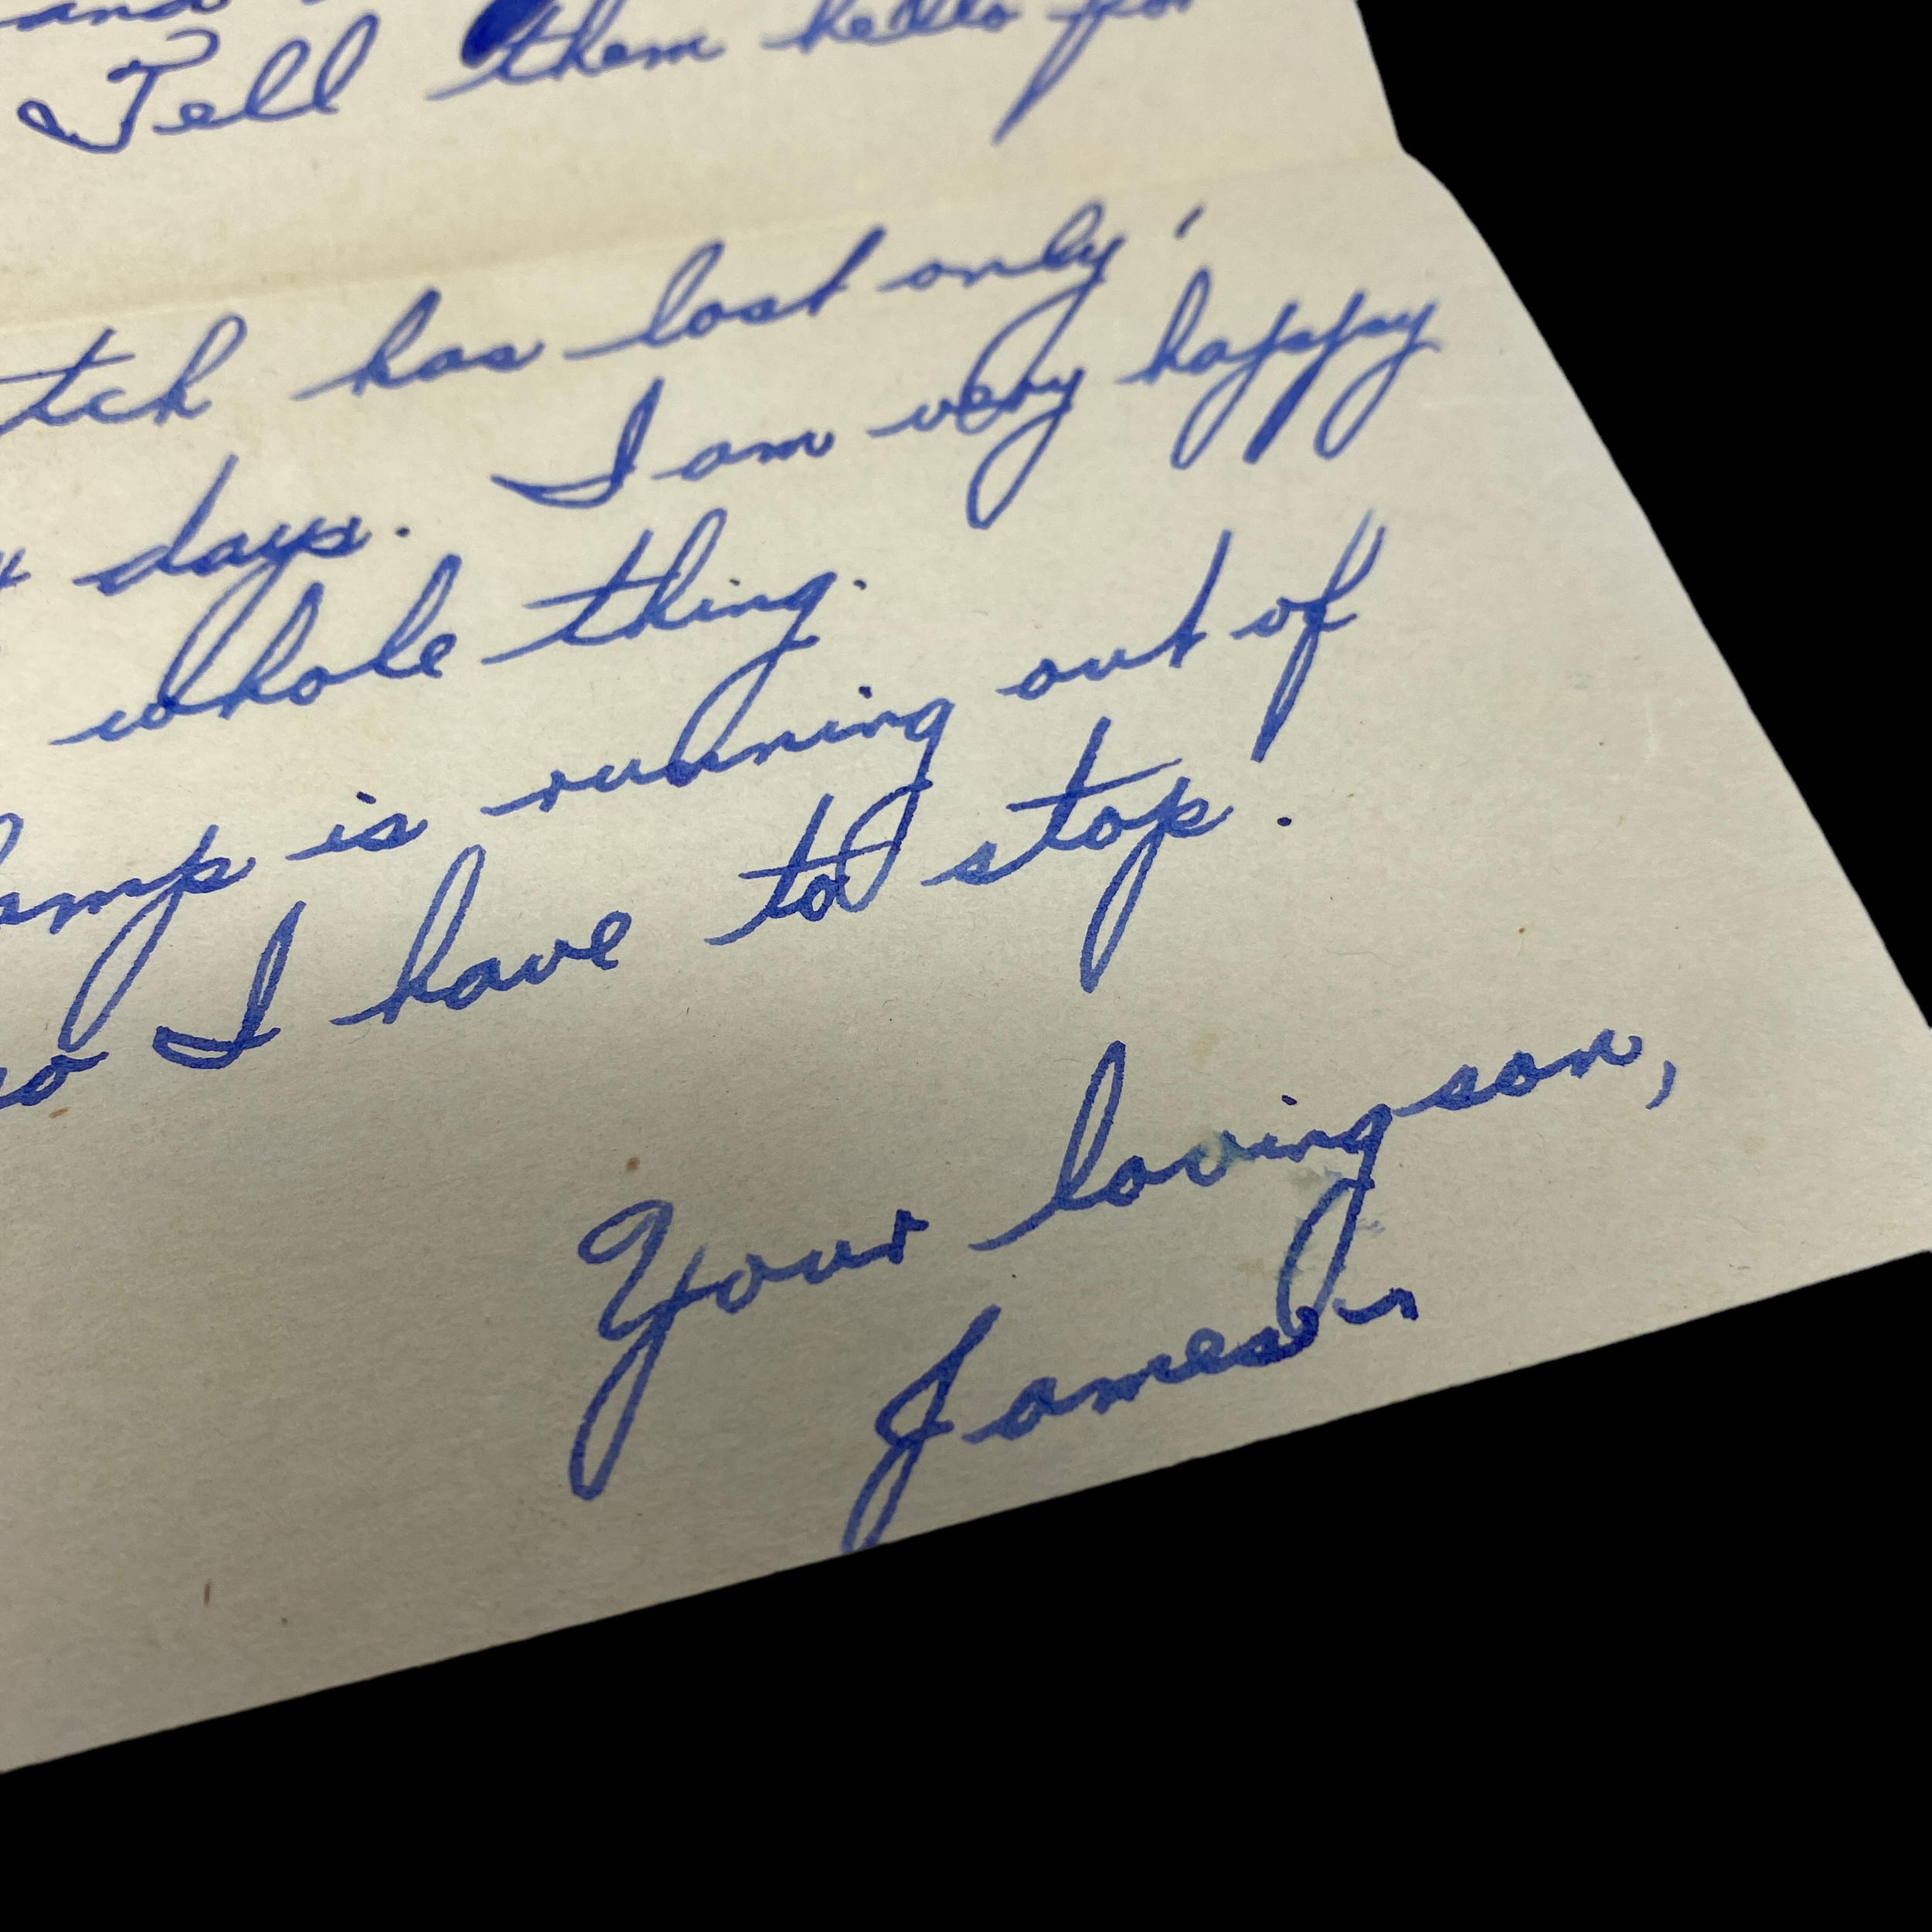 and
Tell them hello for
tch has lost only 1
days. I am very happy
whole thing.
amp is running out of
so I have to stop.
Your loving son,
James